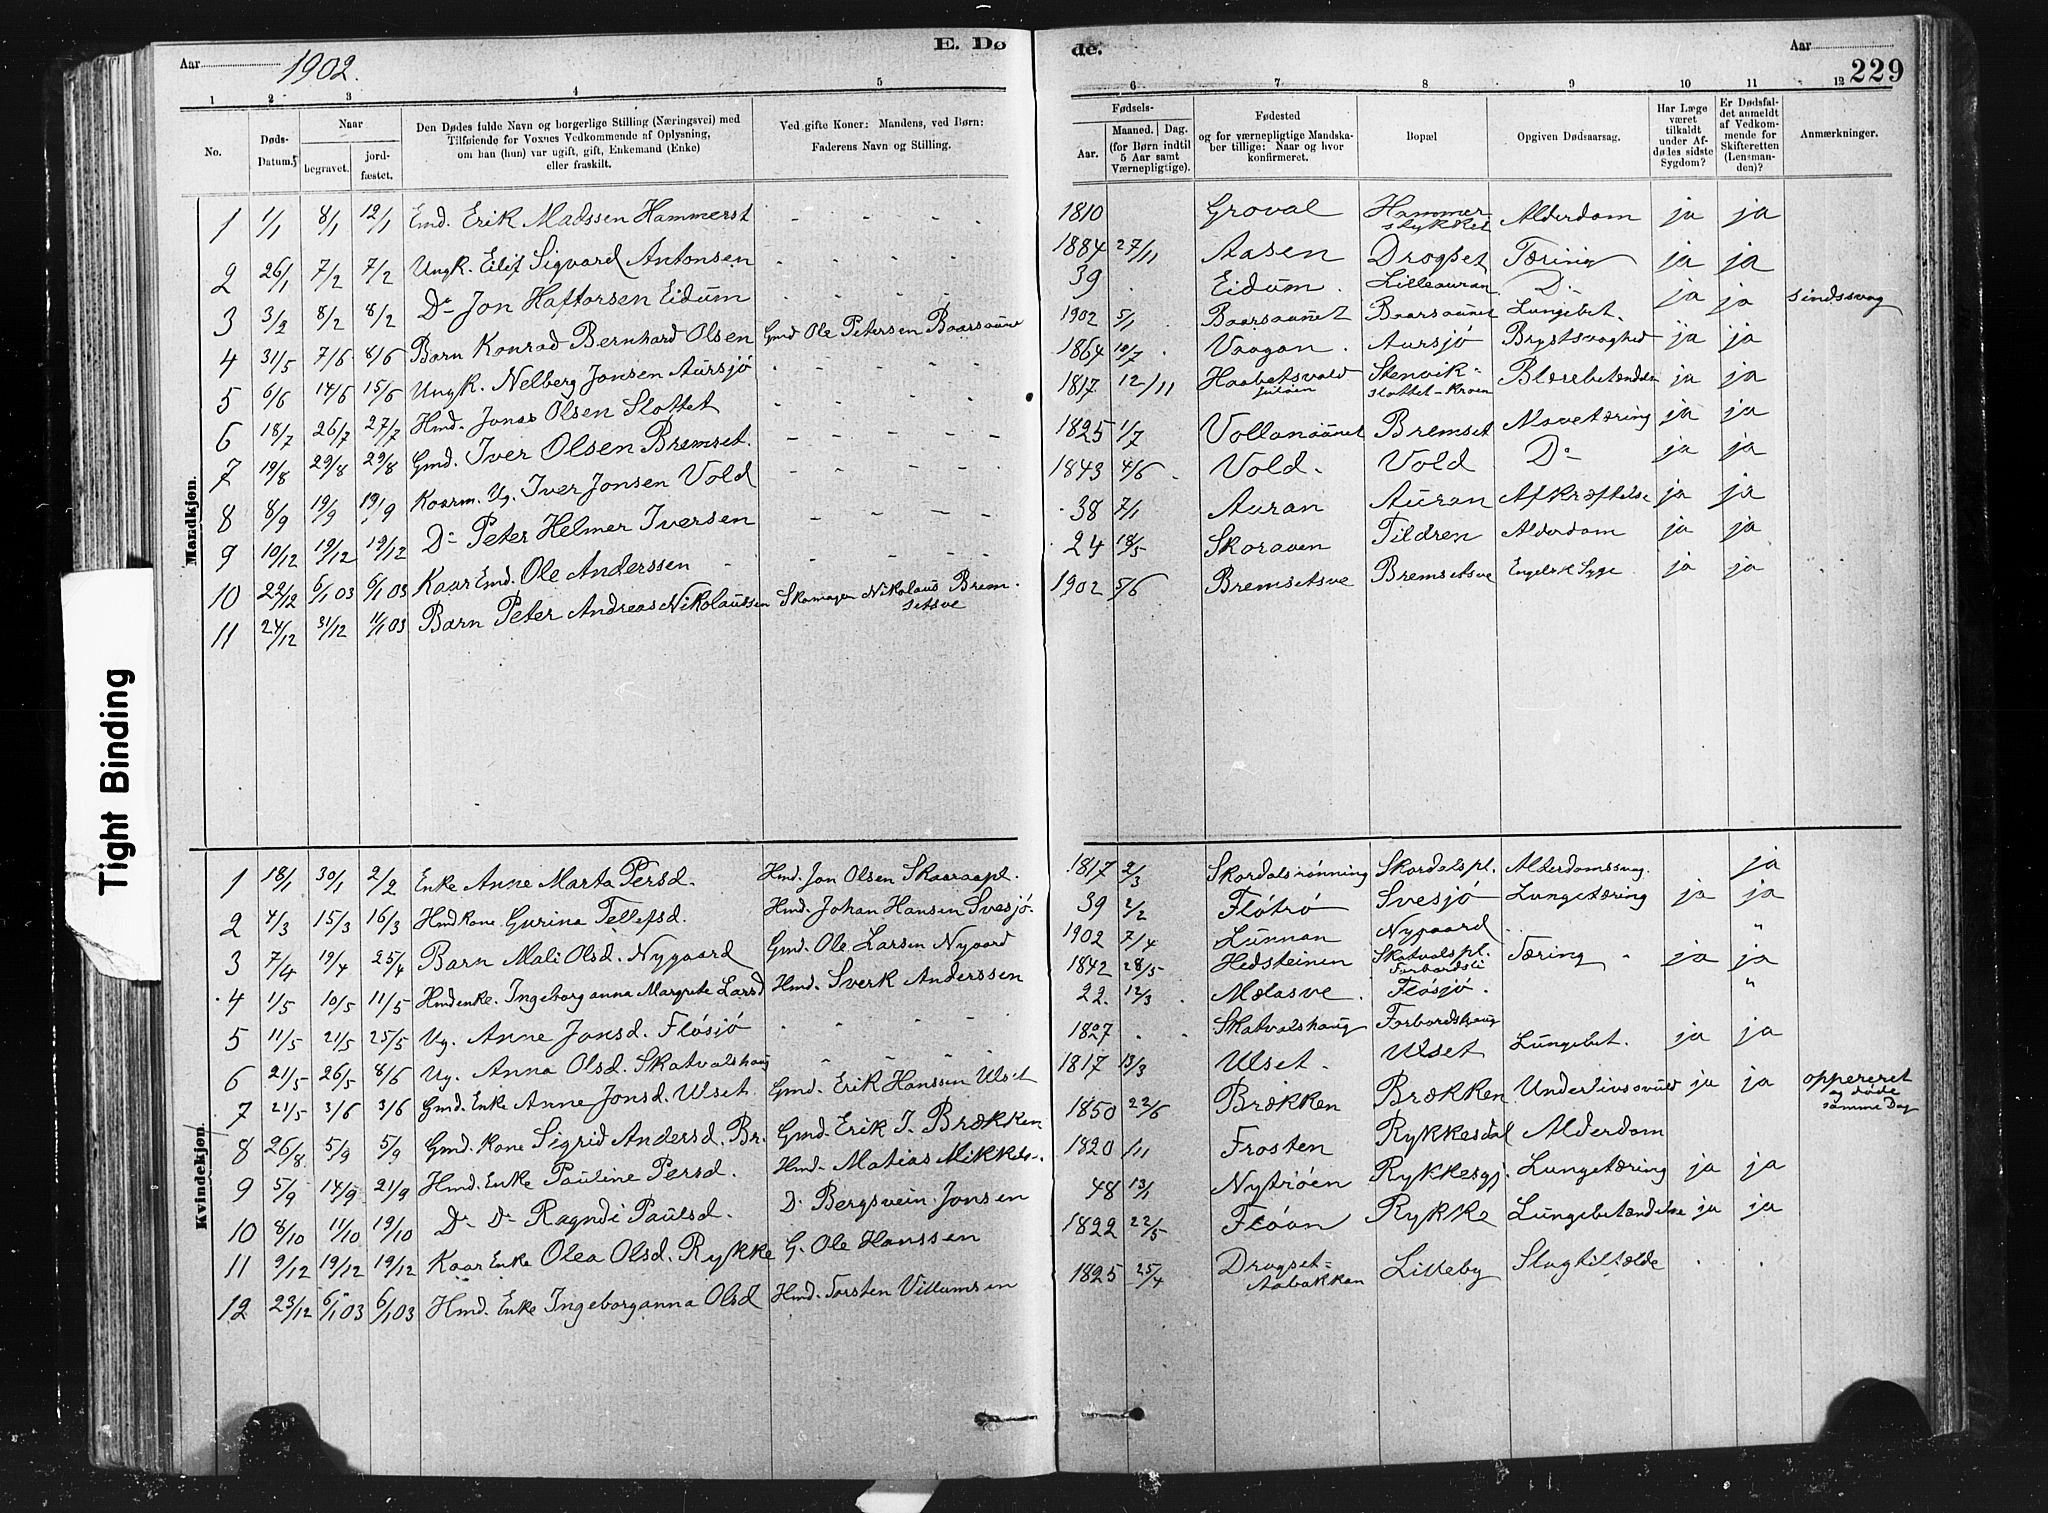 Aar 1902. E. Dø
de. Aar 229
1 2 3 4 5
6 7 8 9 10 11 12
No. Døds-Datum. Naar begravet. jordfæstet. Den Dødes fulde Navn og borgerlige Stilling (Næringsvei) med Tilføiende for Voxnes Vedkommende af Oplysning, om han (hun) var ugift, gift, Enkemand (Enke) eller fraskilt. Ved gifte Koner: Mandens, ved Børn: Faderens Navn og Stilling.
Fødsels- Aar. Maaned. Dag. (for Børn indtil 5 Aar samt Værnepligtige). Fødested og for værnepligtige Mandskaber tillige: Naar og hvor konfirmeret. Bopæl Opgiven Dødsaarsag. Har Læge været tilkaldt under Afdødes sidste Sygdom? Er Dødsfaldet anmeldt af Vedkommende for Skifteretten (Lensmanden)? Anmærkninger.
Mandkjøn.
1 1/1 8/1 12/1 Emd. Erik Madssen Hammerst - - - - 1810 Groval Hammerstykket Alderdom ja ja
2 26/1 7/2 7/2 Ungk. Eilif Sigvard Antonsen - - - - 1884 27/11 Aasen Drogset Tæring ja ja
3 3/2 8/2 8/2 Do Jon Haftorsen Eidum - - - - 39 Eidum. Lilleauran Do ja ja sindssvag
4 31/5 7/6 8/6 Barn Konrad Bernhard Olsen Gmd Ole Petersen Baarsaune 1902 5/1 Baarsaunet Baarsaunet Lungebet. ja ja
5 6/6 14/6 15/6 Ungk. Nelberg Jonsen Aursjö - - - - 1864 10/7 Vaagan. Aursjö Brystsvaghed ja ja
6 18/7 26/7 27/7 Hmd. Jonas Olsen Slottet - - - - 1817 12/11 Haabetsvald Stenvikslottet-Kroen Blærebetændelse ja ja
7 19/8 29/8 29/8 Gmd. Iver Olsen Bremset. - - - - - 1825 1/7 Vollansaunet Bremset Mavetæring ja ja
8 8/9 19/9 19/9 Kaarm. Ug. Iver Jonsen Vold - - - - 1843 4/6 Vold. Vold Do ja ja
9 10/12 19/12 19/12 Do Peter Helmer Iversen - - - - 38 7/1 Auran Auran Afkræftelse ja ja
10 22/12 6/1 03 6/1 03 Kaar Emd. Ole Anderssen - - - - 24 18/5 Skoraven Tildren Alderdom ja ja
11 24/12 31/12 11/1 03 Barn Peter Andreas Nikolaussen Skomager Nikolaus Bremsetsve 1902 5/6 Bremsetsve Bremsetsve Engelsk Syge ja ja
Tight Binding
Kvindekjøn.
1 18/1 30/1 2/2 Enke Anne Marta Persd. Hmd. Jon Olsen Skaaraapl. 1817 2/3 Skordalsrønning Skordalspl. Alderdomssvag. ja
2 4/3 15/3 16/3 Hmdkone Gurina Tellefsd. Hmd. Johan Hansen Svesjö. 39 2/2 Flótró Svesjö Lungetæring ja ja
3 7/4 19/4 25/4 Barn Mali Olsd. Nygaard Gmd. Ole Larsen Nygaard 1902 7/4 Lunnan Nygaard "
4 1/5 10/5 11/5 Hmdenke. Ingeborganna Margrete Larsd Hmd. Sverk Anderssen 1842 28/5 Hedsteinen Skatvalspl. Forbordsli Tæring ja ja
5 11/5 21/5 25/5 Ug. Anne Jonsd. Flósjö - - - - 22. 12/3 Mælasve. Flósjó. "
6 21/5 26/5 8/6 Ug. Anna Olsd. Skatvalshaug - - - - 1827 Skatvalshaug Forbordshaug Lungebet. ja ja
7 21/5 3/6 3/6 Gmd. Enke Anne Jonsd. Ulset Gmd. Erik Hanssen Ulset 1817 13/3 Ulset. Ulset
8 26/8 5/9 5/9 Gmd. Kone Sigrid Andersd. Br. Gmd. Erik J. Brækken 1850 22/6 Brækken Brækken Underlivssvulst ja ja oppereret og døde samme Dag
9 5/9 14/9 21/9 Hmd. Enke Pauline Persd. Hmd. Matias Mikkels-. 1820 1/11 Frosten Rykkesdal Alderdom
10 8/10 11/10 19/10 Do Do Ragndi Paulsd. D. Bergsvein Jonsen 48 13/1 Nytröen Rykkesgj. Lungetæring ja ja
11 9/12 19/12 19/12 Kaar Enke Olea Olsd. Rykke G. Ole Hanssen 1822 22/5 Flóan Rykke Lungebetændelse ja ja
12 23/12 6/1 03 6/1 03 Hmd. Enke Ingeborganna Olsd Hmd. Torsten Villumsen 1825 25/4 Drogset-Aabakkan Lilleby Slagtilfælde